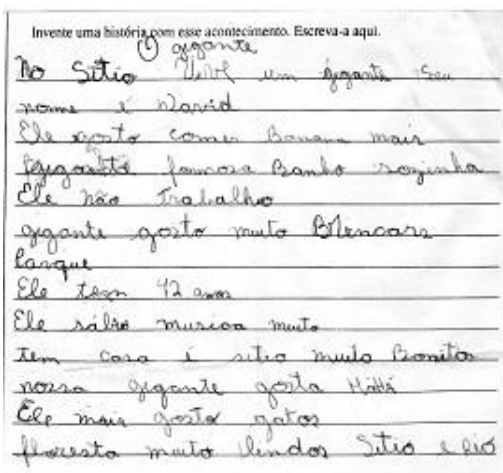 Invente uma história com esse acontecimento. Escreva-a aqui.
O gigante
No Sitio um gigante seu
nome é David
Ele gosto comer Banana mais
gigante famosa Banho sozinha
Ele não Trabalho
gigante gosto muito
Parque
Ele tem 12 anos
Ele musica muito
tem casa é sitio muito Bonitos
nossa gigante gosta
Ele mais gosto gatos
floresta muito lindos Sitio e rio